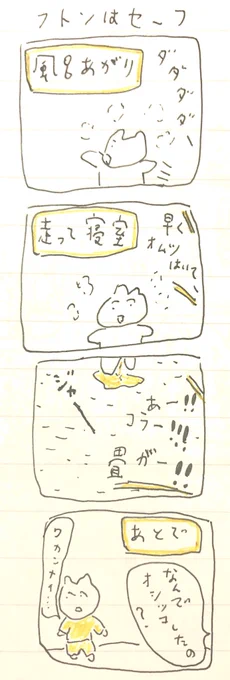 フトンはセーフ
風呂あがり
ダダダダー
走って寝室
早く
オムツ
はいて
ジャー
あー!!
コラー!!!
畳がー!!
あとで
なんで
オシッコしたの
?
ワカンナイ…